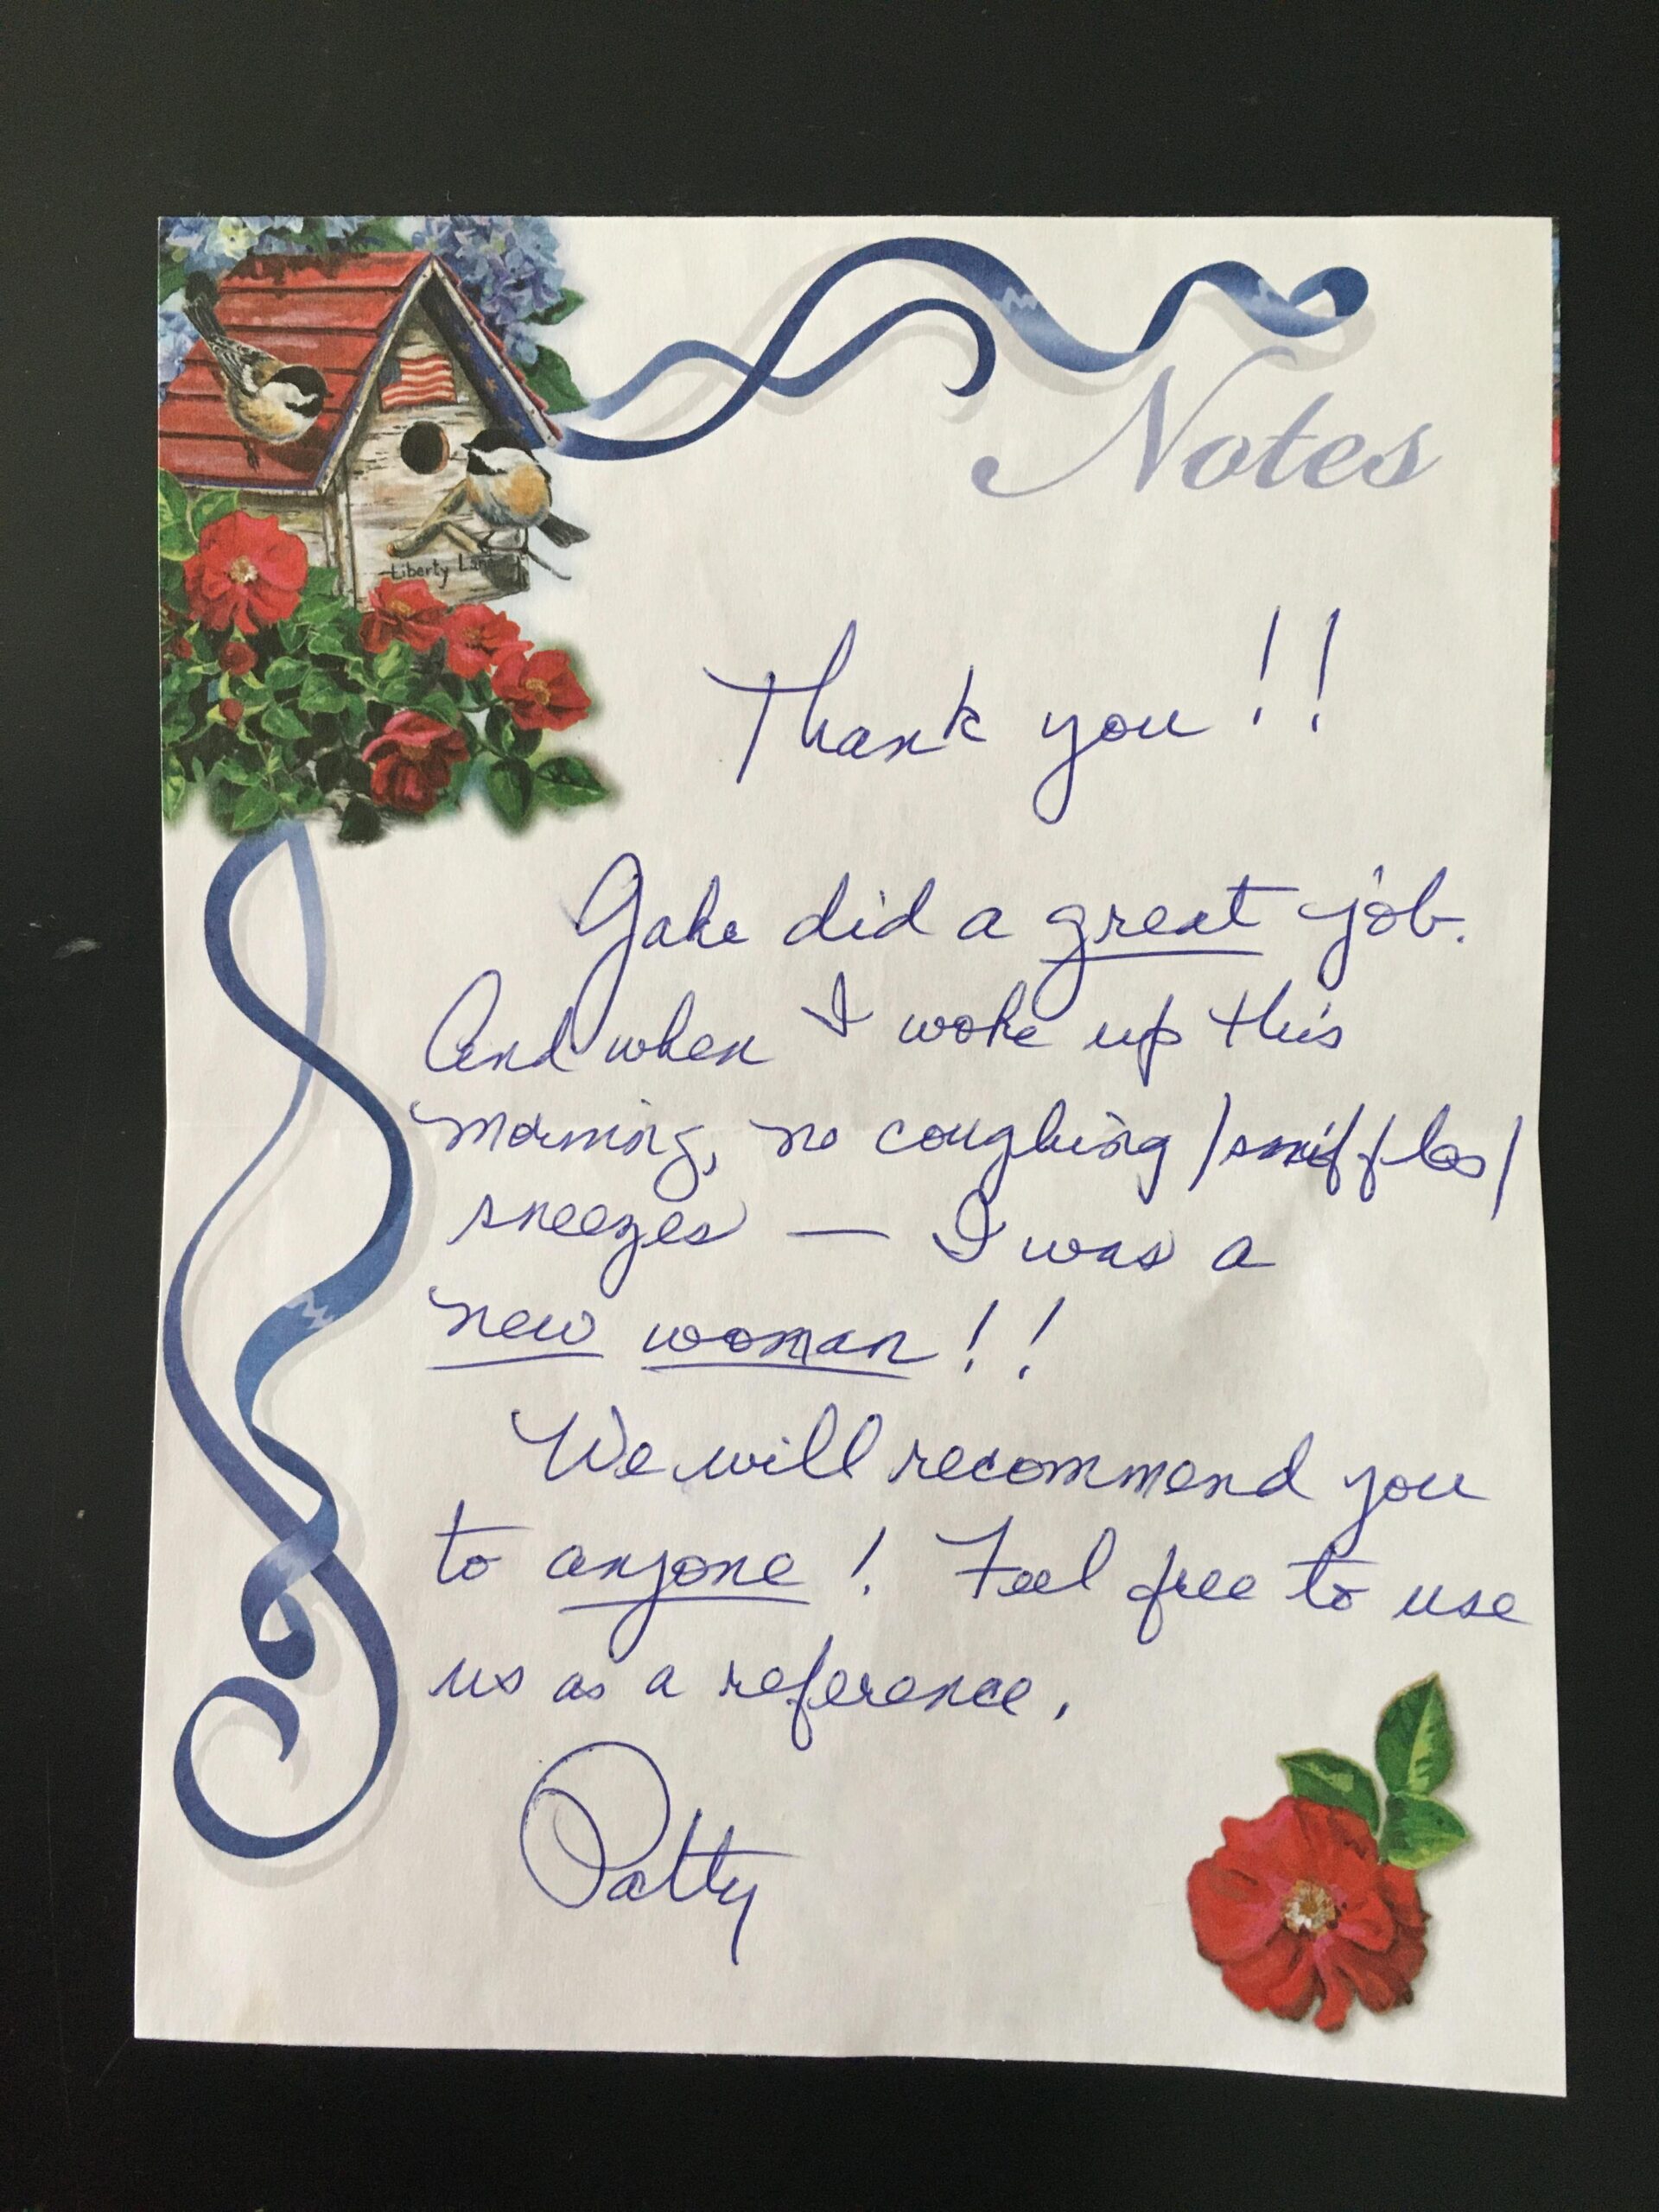 Liberty Lane
Notes
Thank you!!
Jake did a great job.
And when I woke up this
morning, no coughing/sniffles/
sneezes — I was a
new woman!!
We will recommend you
to anyone! Feel free to use
us as a reference.
Patty